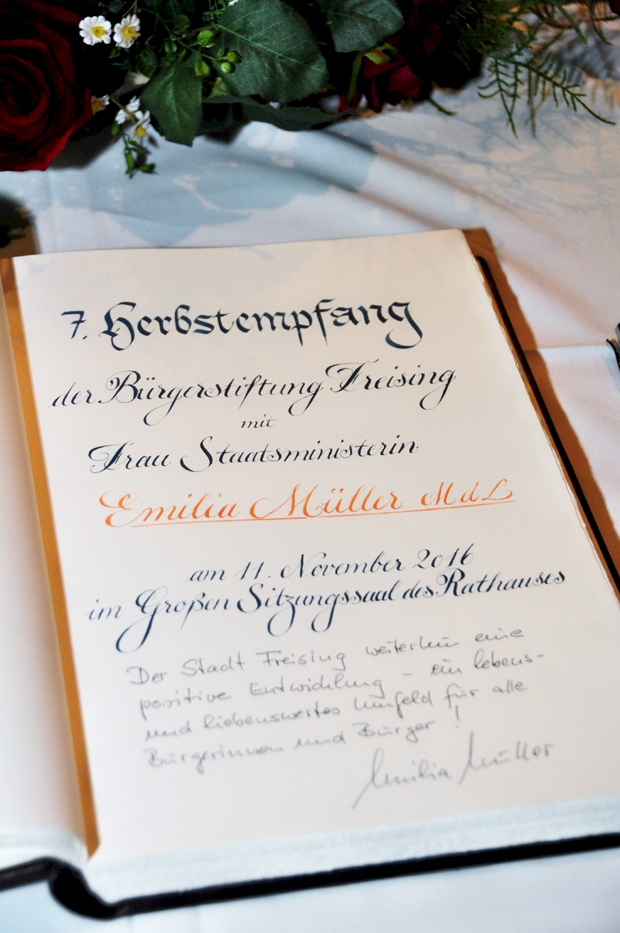 7. Herbstempfang
der Bürgerstiftung Freising
mit
Frau Staatsministerin
Emilia Müller MdL
am 11. November 2016
im Großen Sitzungssaal des Rathauses
Der Stadt Freising weiterhin eine
positive Entwicklung – ein lebens-
und liebenswertes Umfeld für alle
Bürgerinnen und Bürger!
Emilia Müller